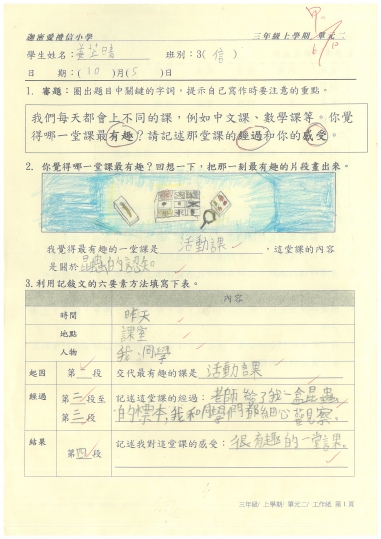 迦密愛禮信小學 三年級上學期 單元二
甲
6/10
學生姓名：黃芷晴 班別：3(信)
日期：(10)月(5)日
1. 審題：圈出題目中關鍵的字詞，提示自己寫作時要注意的重點。
我們每天都會上不同的課，例如中文課、數學課等。你覺
得哪一堂課最有趣？請記述那堂課的經過和你的感受。
2. 你覺得哪一堂課最有趣？回想一下，把那一刻最有趣的片段畫出來。
我覺得最有趣的一堂課是 活動課，這堂課的內容
是關於 昆蟲的
3. 利用記敍文的六要素方法填寫下表。
內容
時間 昨天
地點 課室
人物 我、同學
起因 第一段 交代最有趣的課是 活動課
經過 第二段至 記述這堂課的經過：老師給了我一盒昆蟲
第三段 的標本，我和同學們都細心觀察。
結果 第四段 記述我對這堂課的感受：很有趣的一堂課。
三年級/ 上學期/ 單元二/ 工作紙 第1頁